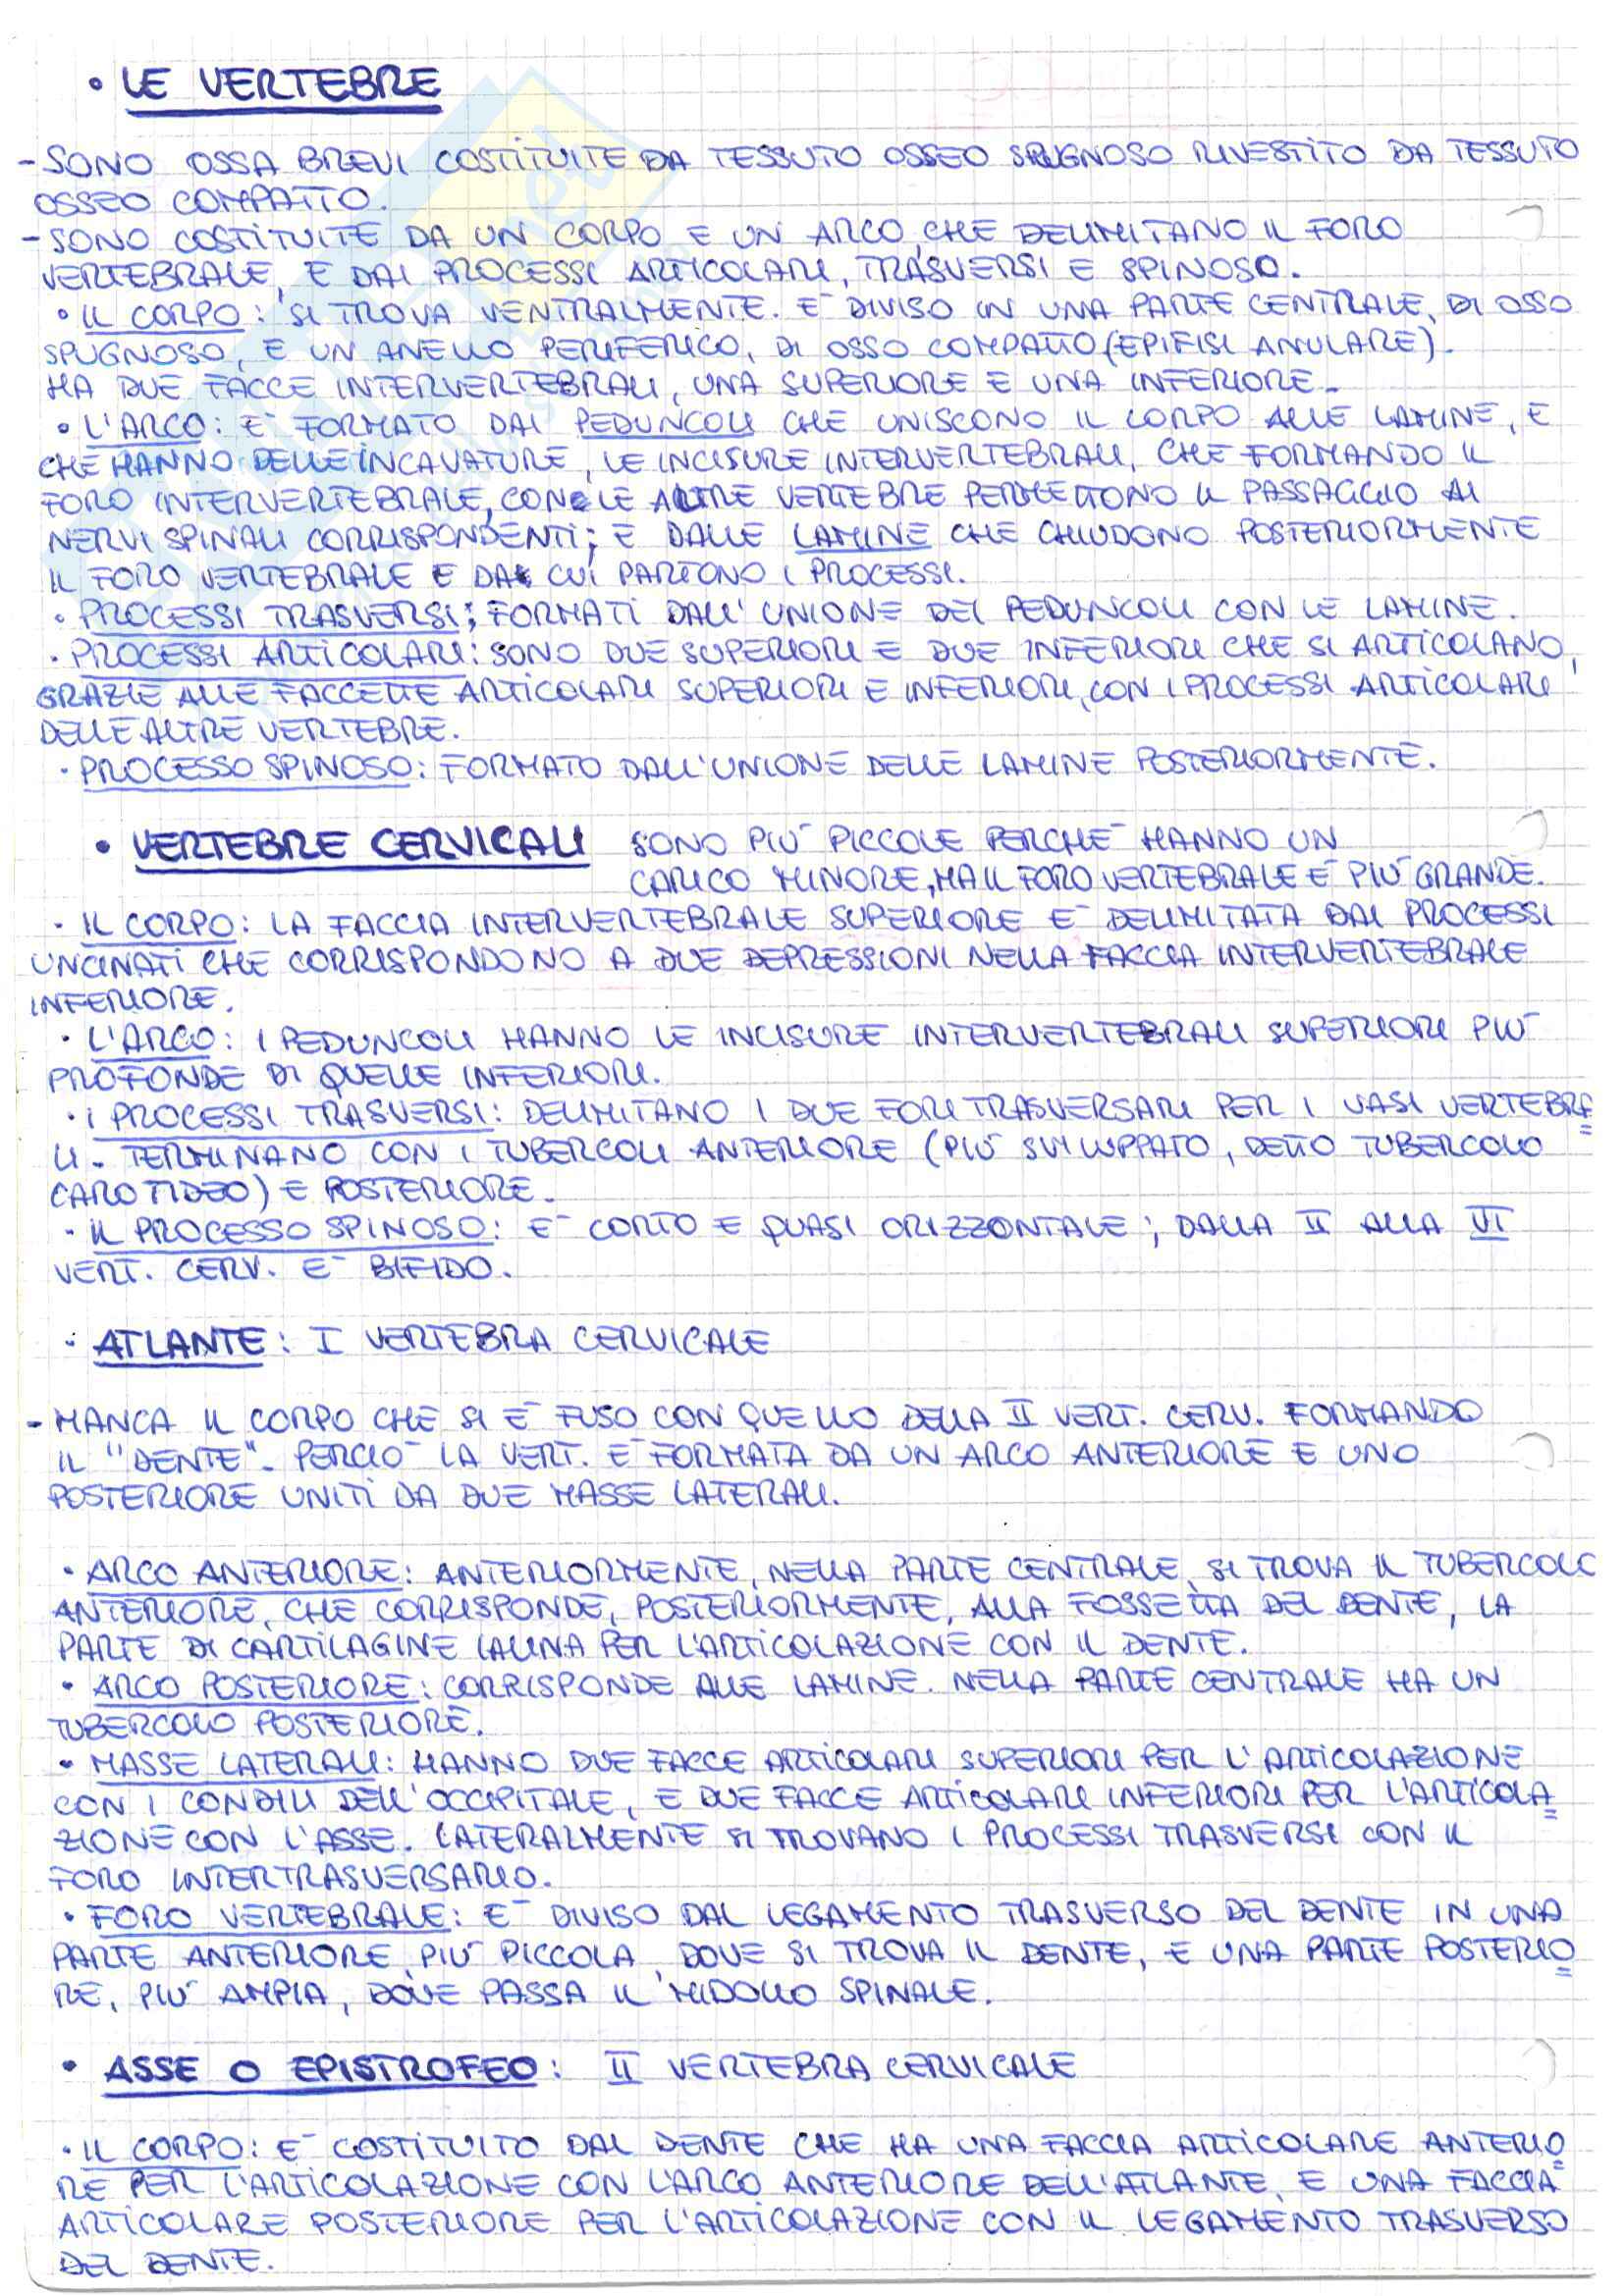 • LE VERTEBRE
- SONO OSSA BREVI COSTITUITE DA TESSUTO OSSEO SPUGNOSO RIVESTITO DA TESSUTO
OSSEO COMPATTO.
- SONO COSTITUITE DA UN CORPO E UN ARCO, CHE DELIMITANO IL FORO
VERTEBRALE, E DAI PROCESSI ARTICOLARI, TRASVERSI E SPINOSO.
• IL CORPO: SI TROVA VENTRALMENTE. E' DIVISO IN UNA PARTE CENTRALE, DI OSSO
SPUGNOSO, E UN ANELLO PERIFERICO, DI OSSO COMPATTO (EPIFISI ANULARE).
HA DUE FACCE INTERVERTEBRALI, UNA SUPERIORE E UNA INFERIORE.
• L'ARCO: E' FORMATO DAI PEDUNCOLI CHE UNISCONO IL CORPO ALLE LAMINE, E
CHE HANNO DELLE INCAVATURE, LE INCISURE INTERVERTEBRALI, CHE FORMANDO IL
FORO INTERVERTEBRALE, CON LE ALTRE VERTEBRE PERMETTONO IL PASSAGGIO AI
NERVI SPINALI CORRISPONDENTI; E DALLE LAMINE CHE CHIUDONO POSTERIORMENTE
IL FORO VERTEBRALE E DA CUI PARTONO I PROCESSI.
• PROCESSI TRASVERSI: FORMATI DALL'UNIONE DEI PEDUNCOLI CON LE LAMINE.
• PROCESSI ARTICOLARI: SONO DUE SUPERIORI E DUE INFERIORI CHE SI ARTICOLANO,
GRAZIE ALLE FACCETTE ARTICOLARI SUPERIORI E INFERIORI, CON I PROCESSI ARTICOLARI
DELLE ALTRE VERTEBRE.
• PROCESSO SPINOSO: FORMATO DALL'UNIONE DELLE LAMINE POSTERIORMENTE.
• VERTEBRE CERVICALI SONO PIU' PICCOLE PERCHE' HANNO UN
CARICO MINORE, MA IL FORO VERTEBRALE E' PIU' GRANDE.
• IL CORPO: LA FACCIA INTERVERTEBRALE SUPERIORE E' DELIMITATA DAI PROCESSI
UNCINATI CHE CORRISPONDONO A DUE DEPRESSIONI NELLA FACCIA INTERVERTEBRALE
INFERIORE.
• L'ARCO: I PEDUNCOLI HANNO LE INCISURE INTERVERTEBRALI SUPERIORI PIU'
PROFONDE DI QUELLE INFERIORI.
• I PROCESSI TRASVERSI: DELIMITANO I DUE FORI TRASVERSARI PER I VASI VERTEBRA
LI. TERMINANO CON I TUBERCOLI ANTERIORE (PIU' SVILUPPATO, DETTO TUBERCOLO
CAROTIDEO) E POSTERIORE.
• IL PROCESSO SPINOSO: E' CORTO E QUASI ORIZZONTALE; DALLA II ALLA VI
VERT. CERV. E' BIFIDO.
• ATLANTE: I VERTEBRA CERVICALE
- MANCA IL CORPO CHE SI E' FUSO CON QUELLO DELLA II VERT. CERV. FORMANDO
IL "DENTE". PERCIO' LA VERT. E' FORMATA DA UN ARCO ANTERIORE E UNO
POSTERIORE UNITI DA DUE MASSE LATERALI.
• ARCO ANTERIORE: ANTERIORMENTE, NELLA PARTE CENTRALE, SI TROVA IL TUBERCOLO
ANTERIORE, CHE CORRISPONDE, POSTERIORMENTE, ALLA FOSSETTA DEL DENTE, LA
PARTE DI CARTILAGINE IALINA PER L'ARTICOLAZIONE CON IL DENTE.
• ARCO POSTERIORE: CORRISPONDE ALLE LAMINE. NELLA PARTE CENTRALE HA UN
TUBERCOLO POSTERIORE.
• MASSE LATERALI: HANNO DUE FACCE ARTICOLARI SUPERIORI PER L'ARTICOLAZIONE
CON I CONDILI DELL'OCCIPITALE, E DUE FACCE ARTICOLARI INFERIORI PER L'ARTICOLA
ZIONE CON L'ASSE. LATERALMENTE SI TROVANO I PROCESSI TRASVERSI CON IL
FORO INTERTRASVERSARIO.
• FORO VERTEBRALE: E' DIVISO DAL LEGAMENTO TRASVERSO DEL DENTE IN UNA
PARTE ANTERIORE, PIU' PICCOLA, DOVE SI TROVA IL DENTE, E UNA PARTE POSTERIO
RE, PIU' AMPIA, DOVE PASSA IL MIDOLLO SPINALE.
• ASSE O EPISTROFEO: II VERTEBRA CERVICALE
• IL CORPO: E' COSTITUITO DAL DENTE CHE HA UNA FACCIA ARTICOLARE ANTERIO
RE PER L'ARTICOLAZIONE CON L'ARCO ANTERIORE DELL'ATLANTE, E UNA FACCIA
ARTICOLARE POSTERIORE PER L'ARTICOLAZIONE CON IL LEGAMENTO TRASVERSO
DEL DENTE.